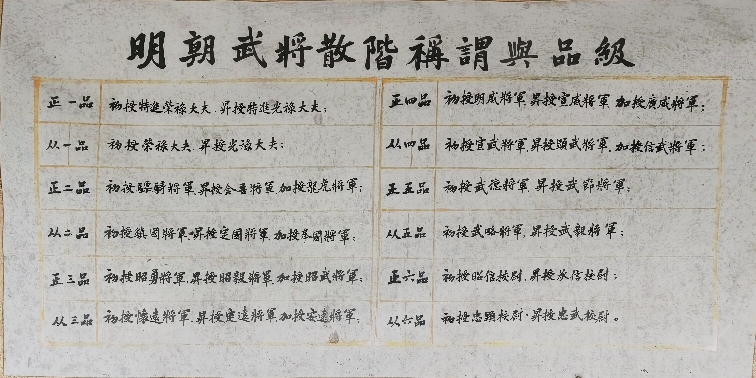 明朝武將散階稱謂與品級
正一品 初授特進榮祿大夫、昇授特進光祿大夫；
从一品 初授榮祿大夫、昇授光祿大夫；
正二品 初授驃騎將軍、昇授金吾將軍、加授龍虎將軍；
从二品 初授鎮國將軍、昇授定國將軍、加授奉國將軍；
正三品 初授昭勇將軍、昇授昭毅將軍、加授昭武將軍；
从三品 初授懷遠將軍、昇授定遠將軍、加授安遠將軍；
正四品 初授明威將軍、昇授宣威將軍、加授廣威將軍；
从四品 初授宣武將軍、昇授顯武將軍、加授信武將軍；
正五品 初授武德將軍、昇授武節將軍；
从五品 初授武略將軍、昇授武毅將軍；
正六品 初授昭信校尉、昇授承信校尉；
从六品 初授忠顯校尉、昇授忠武校尉。